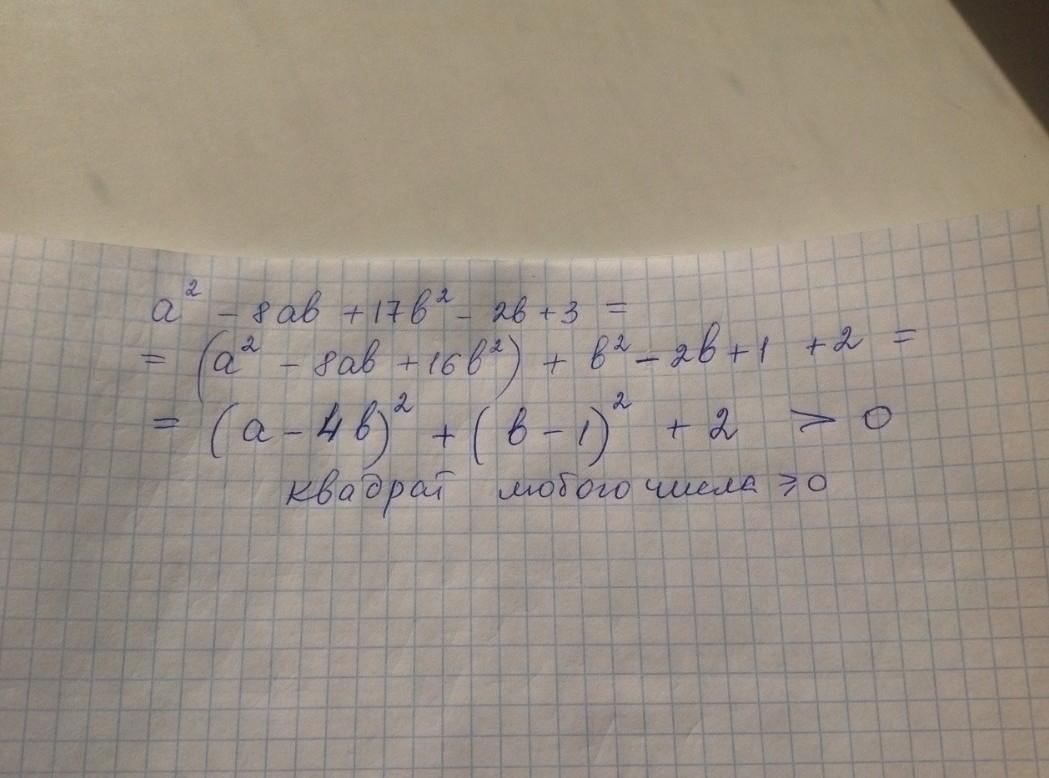 a² - 8ab + 17b² - 2b + 3 =
= (a² - 8ab + 16b²) + b² - 2b + 1 + 2 =
= (a - 4b)² + (b - 1)² + 2 > 0
квадрат любого числа ⩾ 0